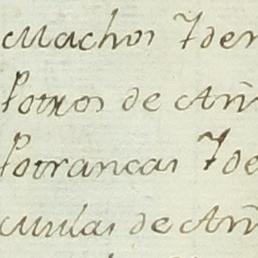 Machos Iden
Potros de Añ
Potrancas Ide
Mulas de Añ